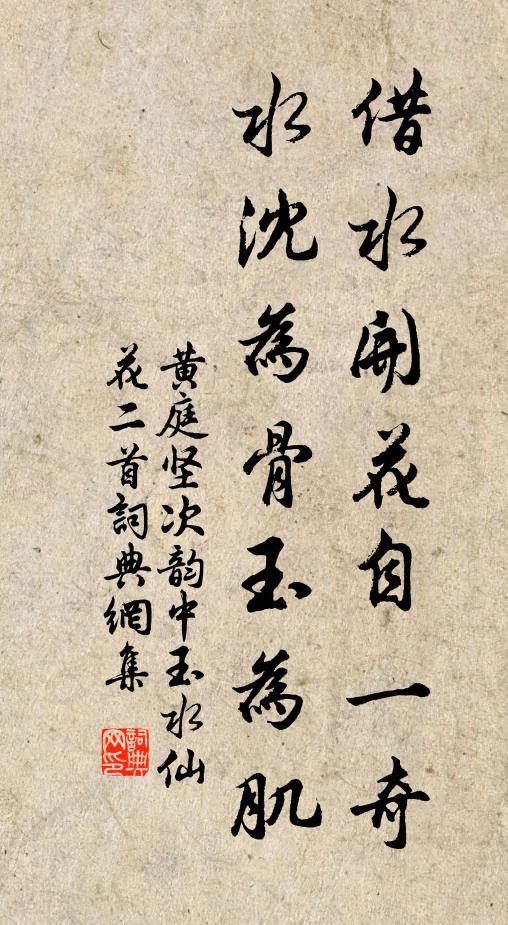 借水開花自一奇
水沈為骨玉為肌
黄庭坚次韵中玉水仙
花二首詞典網集
詞典网印